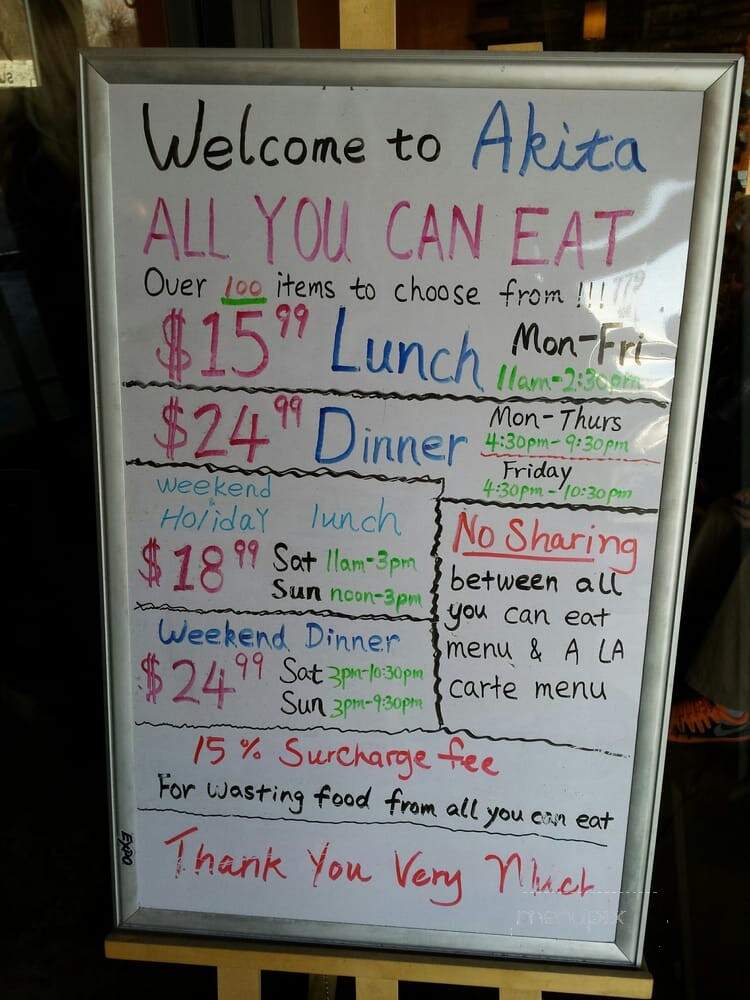 Welcome to Akita
ALL YOU CAN EAT
Over 100 items to choose from !!!
$15.99 Lunch Mon-Fri
11am-2:30pm
$24.99 Dinner Mon-Thurs
4:30pm-9:30pm
Friday
4:30pm-10:30pm
Weekend
Holiday lunch
$18.99 Sat 11am-3pm
Sun noon-3pm
Weekend Dinner
$24.99 Sat 3pm-10:30pm
Sun 3pm-9:30pm
No Sharing
between all
you can eat
menu & A LA
carte menu
15% Surcharge fee
For wasting food from all you can eat
Thank You Very Much
EXPO
menupix